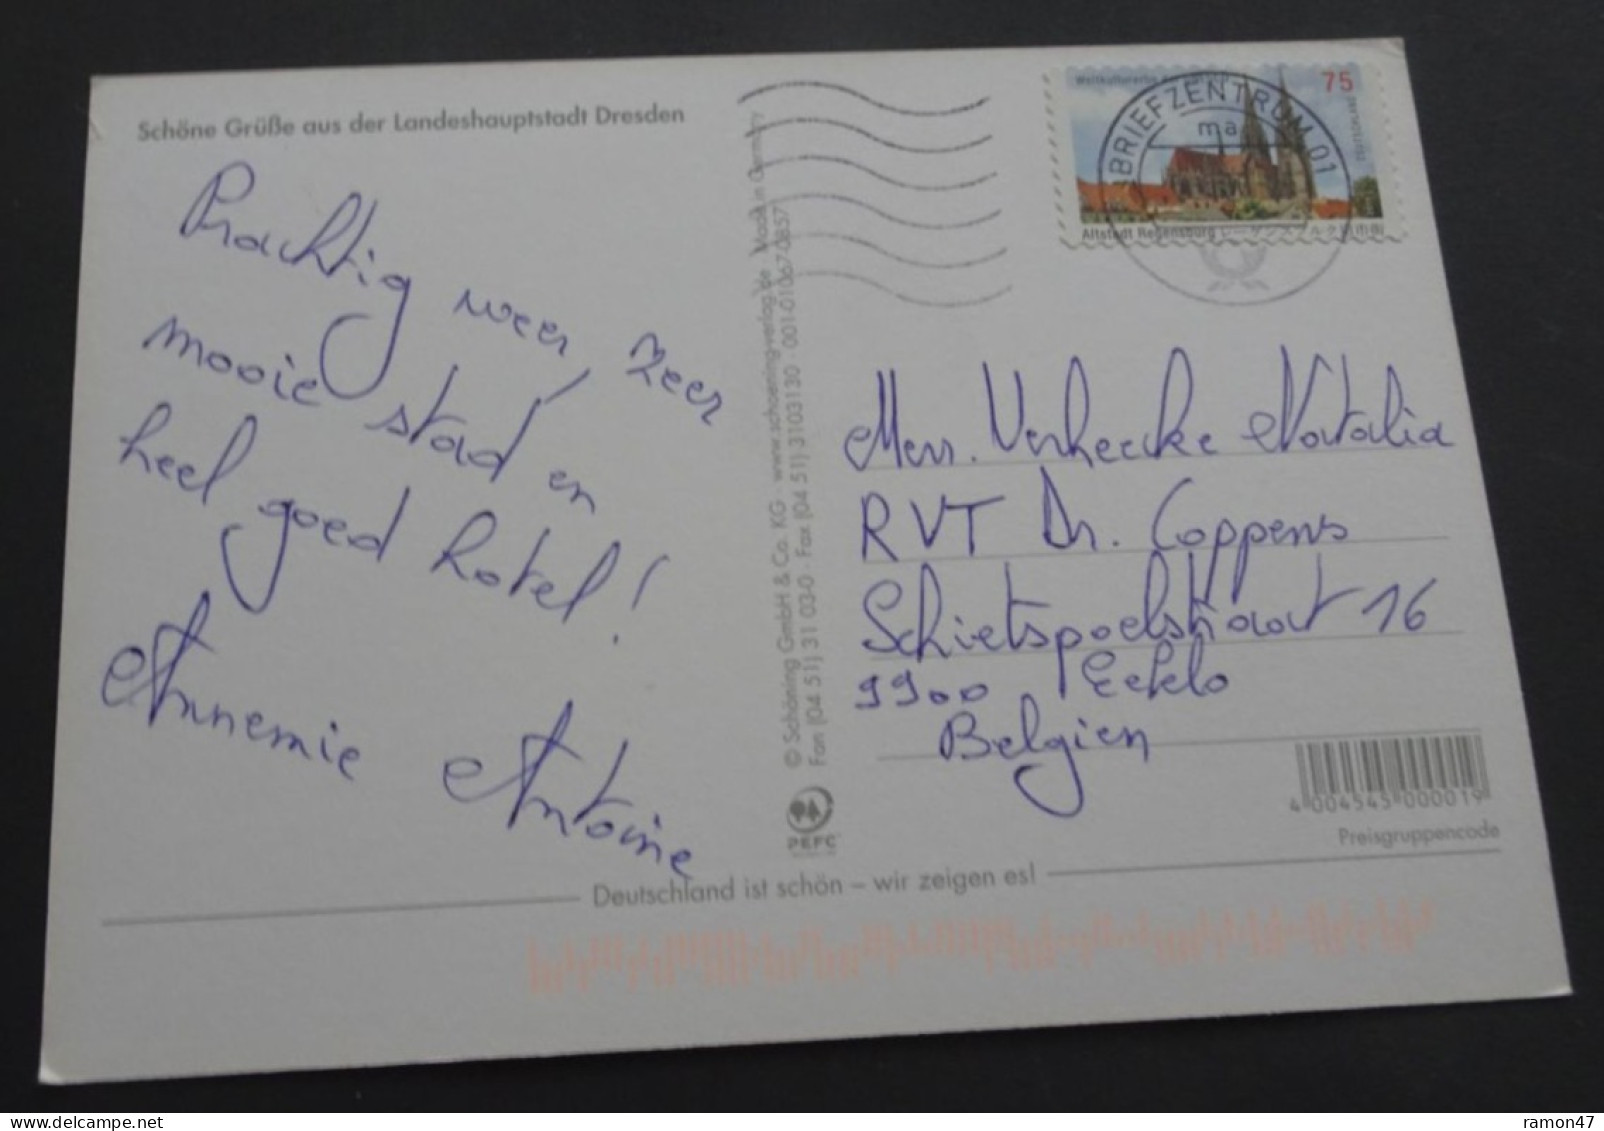 Schöne Grüße aus der Landeshauptstadt Dresden
Prachtig weer, zeer
mooie stad en
heel goed hotel!
Annemie Antoine
© Schöning GmbH & Co. KG · www.schoeningverlag.de · Made in Germany
Fon (04 51) 31 03-0 · Fax (04 51) 3103130 · 001-01067-0857
PEFC
75
Altstadt Regensburg
BRIEFZENTRUM 01
ma
Mevr. Verheecke Natalia
RVT Dr. Coppens
Schietspoelstraat 16
9900 Eeklo
Belgien
4 004545 000019
Preisgruppencode
Deutschland ist schön – wir zeigen es!
delcampe.net
ramon47